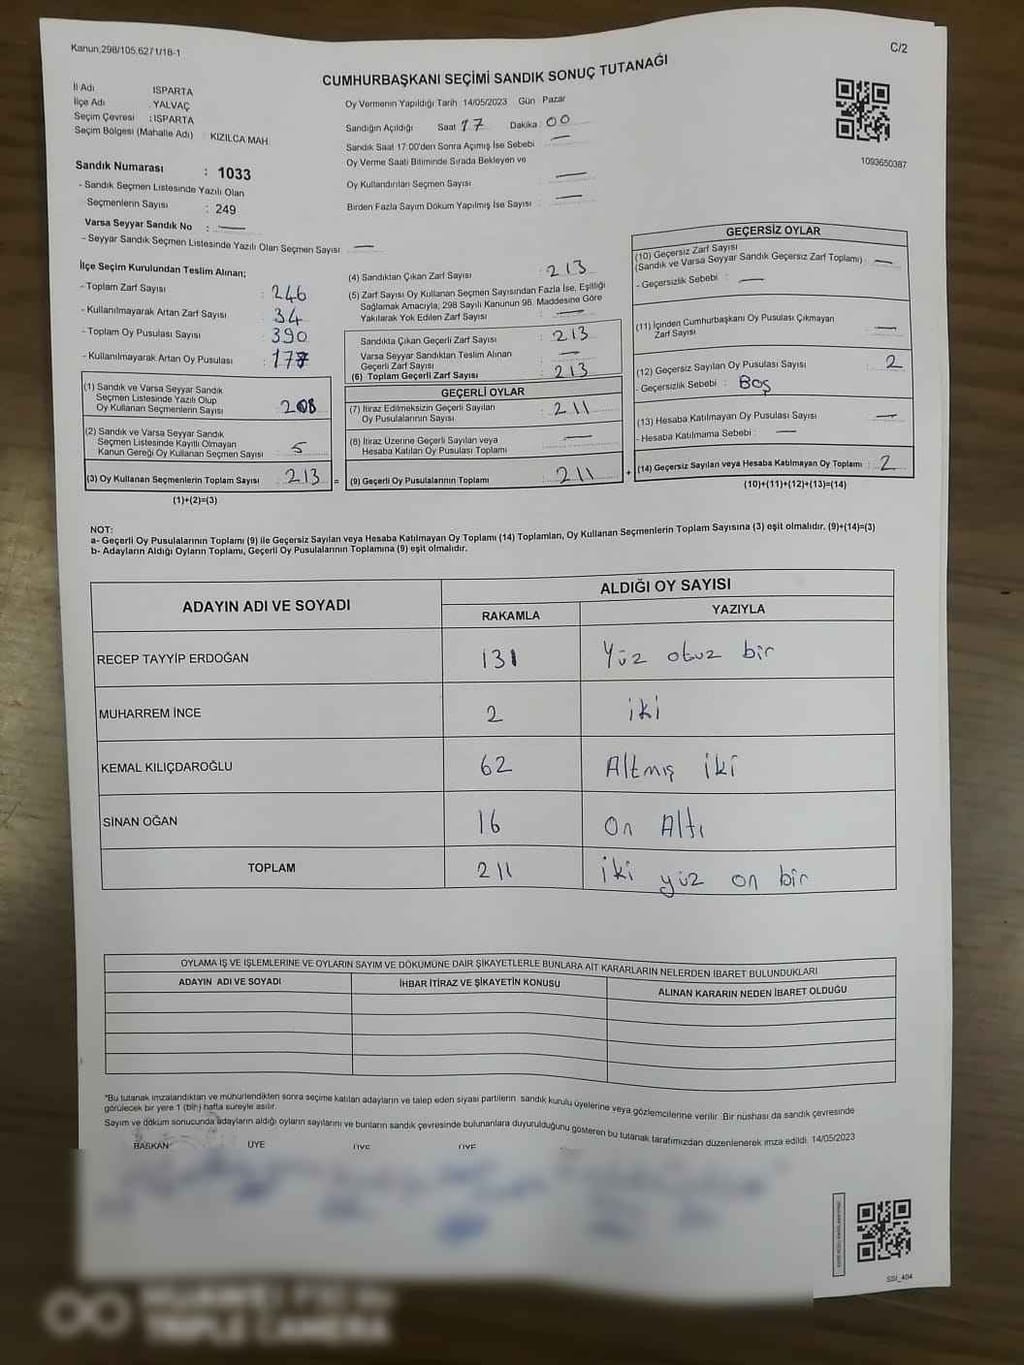 Kanun,298/105,6271/18-1
C/2
CUMHURBAŞKANI SEÇİMİ SANDIK SONUÇ TUTANAĞI
İl Adı ISPARTA
İlçe Adı : YALVAÇ
Seçim Çevresi : ISPARTA
Seçim Bölgesi (Mahalle Adı) : KIZILCA MAH
Sandık Numarası : 1033
- Sandık Seçmen Listesinde Yazılı Olan
Seçmenlerin Sayısı : 249
Varsa Seyyar Sandık No : —
- Seyyar Sandık Seçmen Listesinde Yazılı Olan Seçmen Sayısı —
Oy Vermenin Yapıldığı Tarih 14/05/2023 Gün Pazar
Sandığın Açıldığı Saat 17 Dakika : 00
Sandık Saat 17:00'den Sonra Açımış İse Sebebi —
Oy Verme Saati Bitiminde Sırada Bekleyen ve
Oy Kullandırılan Seçmen Sayısı —
Birden Fazla Sayım Döküm Yapılmış İse Sayısı —
1093650387
İlçe Seçim Kurulundan Teslim Alınan;
- Toplam Zarf Sayısı : 246
- Kullanılmayarak Artan Zarf Sayısı : 34
- Toplam Oy Pusulası Sayısı : 390
- Kullanılmayarak Artan Oy Pusulası : 177
(1) Sandık ve Varsa Seyyar Sandık
Seçmen Listesinde Yazılı Olup
Oy Kullanan Seçmenlerin Sayısı 208
(2) Sandık ve Varsa Seyyar Sandık
Seçmen Listesinde Kayıtlı Olmayan
Kanun Gereği Oy Kullanan Seçmen Sayısı 5
(3) Oy Kullanan Seçmenlerin Toplam Sayısı 213 =
(1)+(2)=(3)
(4) Sandıktan Çıkan Zarf Sayısı : 213
(5) Zarf Sayısı Oy Kullanan Seçmen Sayısından Fazla İse, Eşitliği
Sağlamak Amacıyla; 298 Sayılı Kanunun 98. Maddesine Göre
Yakılarak Yok Edilen Zarf Sayısı : —
Sandıkta Çıkan Geçerli Zarf Sayısı : 213
Varsa Seyyar Sandıktan Teslim Alınan
Geçerli Zarf Sayısı : —
(6) Toplam Geçerli Zarf Sayısı : 213
GEÇERLİ OYLAR
(7) İtiraz Edilmeksizin Geçerli Sayılan
Oy Pusulalarının Sayısı : 211
(8) İtiraz Üzerine Geçerli Sayılan veya
Hesaba Katılan Oy Pusulası Toplamı : —
(9) Geçerli Oy Pusulalarının Toplamı : 211 +
GEÇERSİZ OYLAR
(10) Geçersiz Zarf Sayısı
(Sandık ve Varsa Seyyar Sandık Geçersiz Zarf Toplamı) : —
- Geçersizlik Sebebi : —
(11) İçinden Cumhurbaşkanı Oy Pusulası Çıkmayan
Zarf Sayısı : —
(12) Geçersiz Sayılan Oy Pusulası Sayısı : 2
- Geçersizlik Sebebi : Boş
(13) Hesaba Katılmayan Oy Pusulası Sayısı : —
- Hesaba Katılmama Sebebi : —
(14) Geçersiz Sayılan veya Hesaba Katılmayan Oy Toplamı : 2
(10)+(11)+(12)+(13)=(14)
NOT:
a- Geçerli Oy Pusulalarının Toplamı (9) ile Geçersiz Sayılan veya Hesaba Katılmayan Oy Toplamı (14) Toplamları, Oy Kullanan Seçmenlerin Toplam Sayısına (3) eşit olmalıdır. (9)+(14)=(3)
b- Adayların Aldığı Oyların Toplamı, Geçerli Oy Pusulalarının Toplamına (9) eşit olmalıdır.
ADAYIN ADI VE SOYADI ALDIĞI OY SAYISI
RAKAMLA YAZIYLA
RECEP TAYYİP ERDOĞAN 131 Yüz otuz bir
MUHARREM İNCE 2 iki
KEMAL KILIÇDAROĞLU 62 Altmış iki
SİNAN OĞAN 16 On Altı
TOPLAM 211 iki yüz on bir
OYLAMA İŞ VE İŞLEMLERİNE VE OYLARIN SAYIM VE DÖKÜMÜNE DAİR ŞİKAYETLERLE BUNLARA AİT KARARLARIN NELERDEN İBARET BULUNDUKLARI
ADAYIN ADI VE SOYADI İHBAR İTİRAZ VE ŞİKAYETİN KONUSU ALINAN KARARIN NEDEN İBARET OLDUĞU
*Bu tutanak imzalandıktan ve mühürlendikten sonra seçime katılan adayların ve talep eden siyasi partilerin sandık kurulu üyelerine veya gözlemcilerine verilir. Bir nüshası da sandık çevresinde
görülecek bir yere 1 (bir) hafta süreyle asılır.
Sayım ve döküm sonucunda adayların aldığı oyların sayılarını ve bunların sandık çevresinde bulunanlara duyurulduğunu gösteren bu tutanak tarafımızdan düzenlenerek imza edildi. 14/05/2023
BAŞKAN ÜYE ÜYE ÜYE
SSI_404
TRIPLE CAMERA